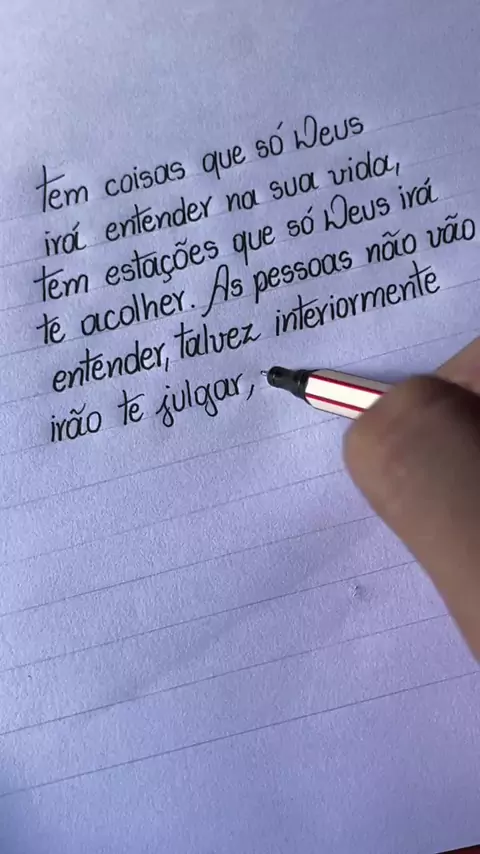 Tem coisas que só Deus
irá entender na sua vida,
tem estações que só Deus irá
te acolher. As pessoas não vão
entender, talvez interiormente
irão te julgar,